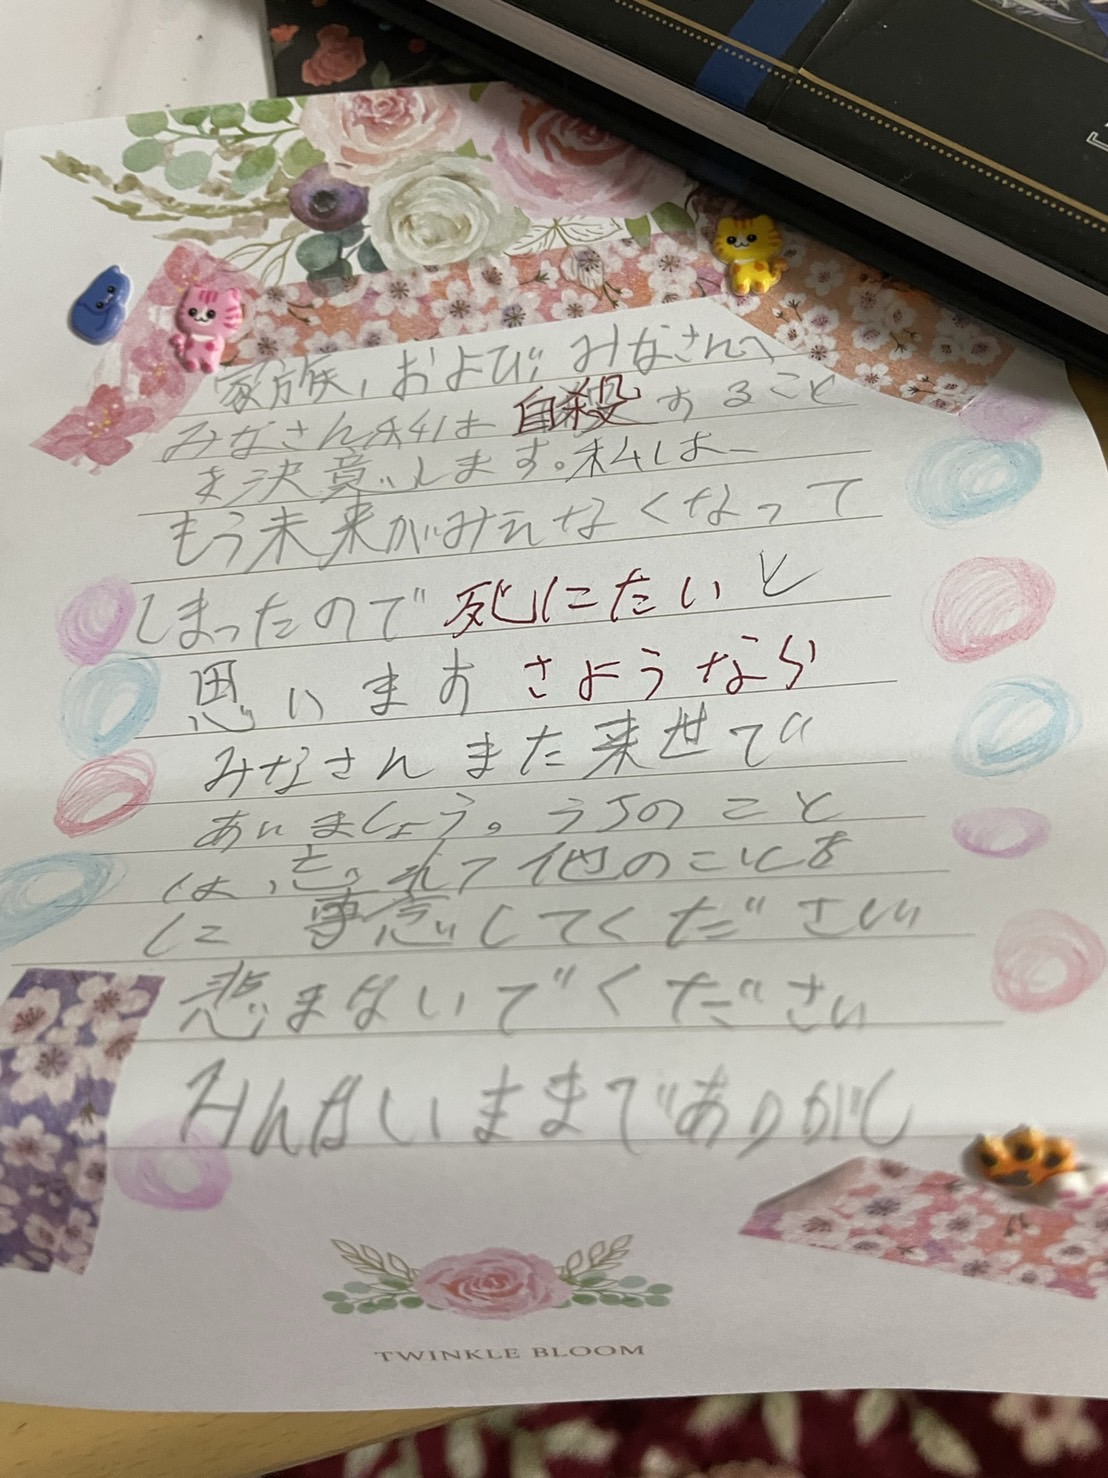 家族、および、みなさんへ
みなさん私は自殺すること
を決意します。私は、
もう未来がみえなくなって
しまったので死にたいと
思います さようなら
みなさん また来世で
あいましょう。うちのこと
は、忘れて他のことを
に専念してください
悲まないでください
みんないままでありがと
TWINKLE BLOOM